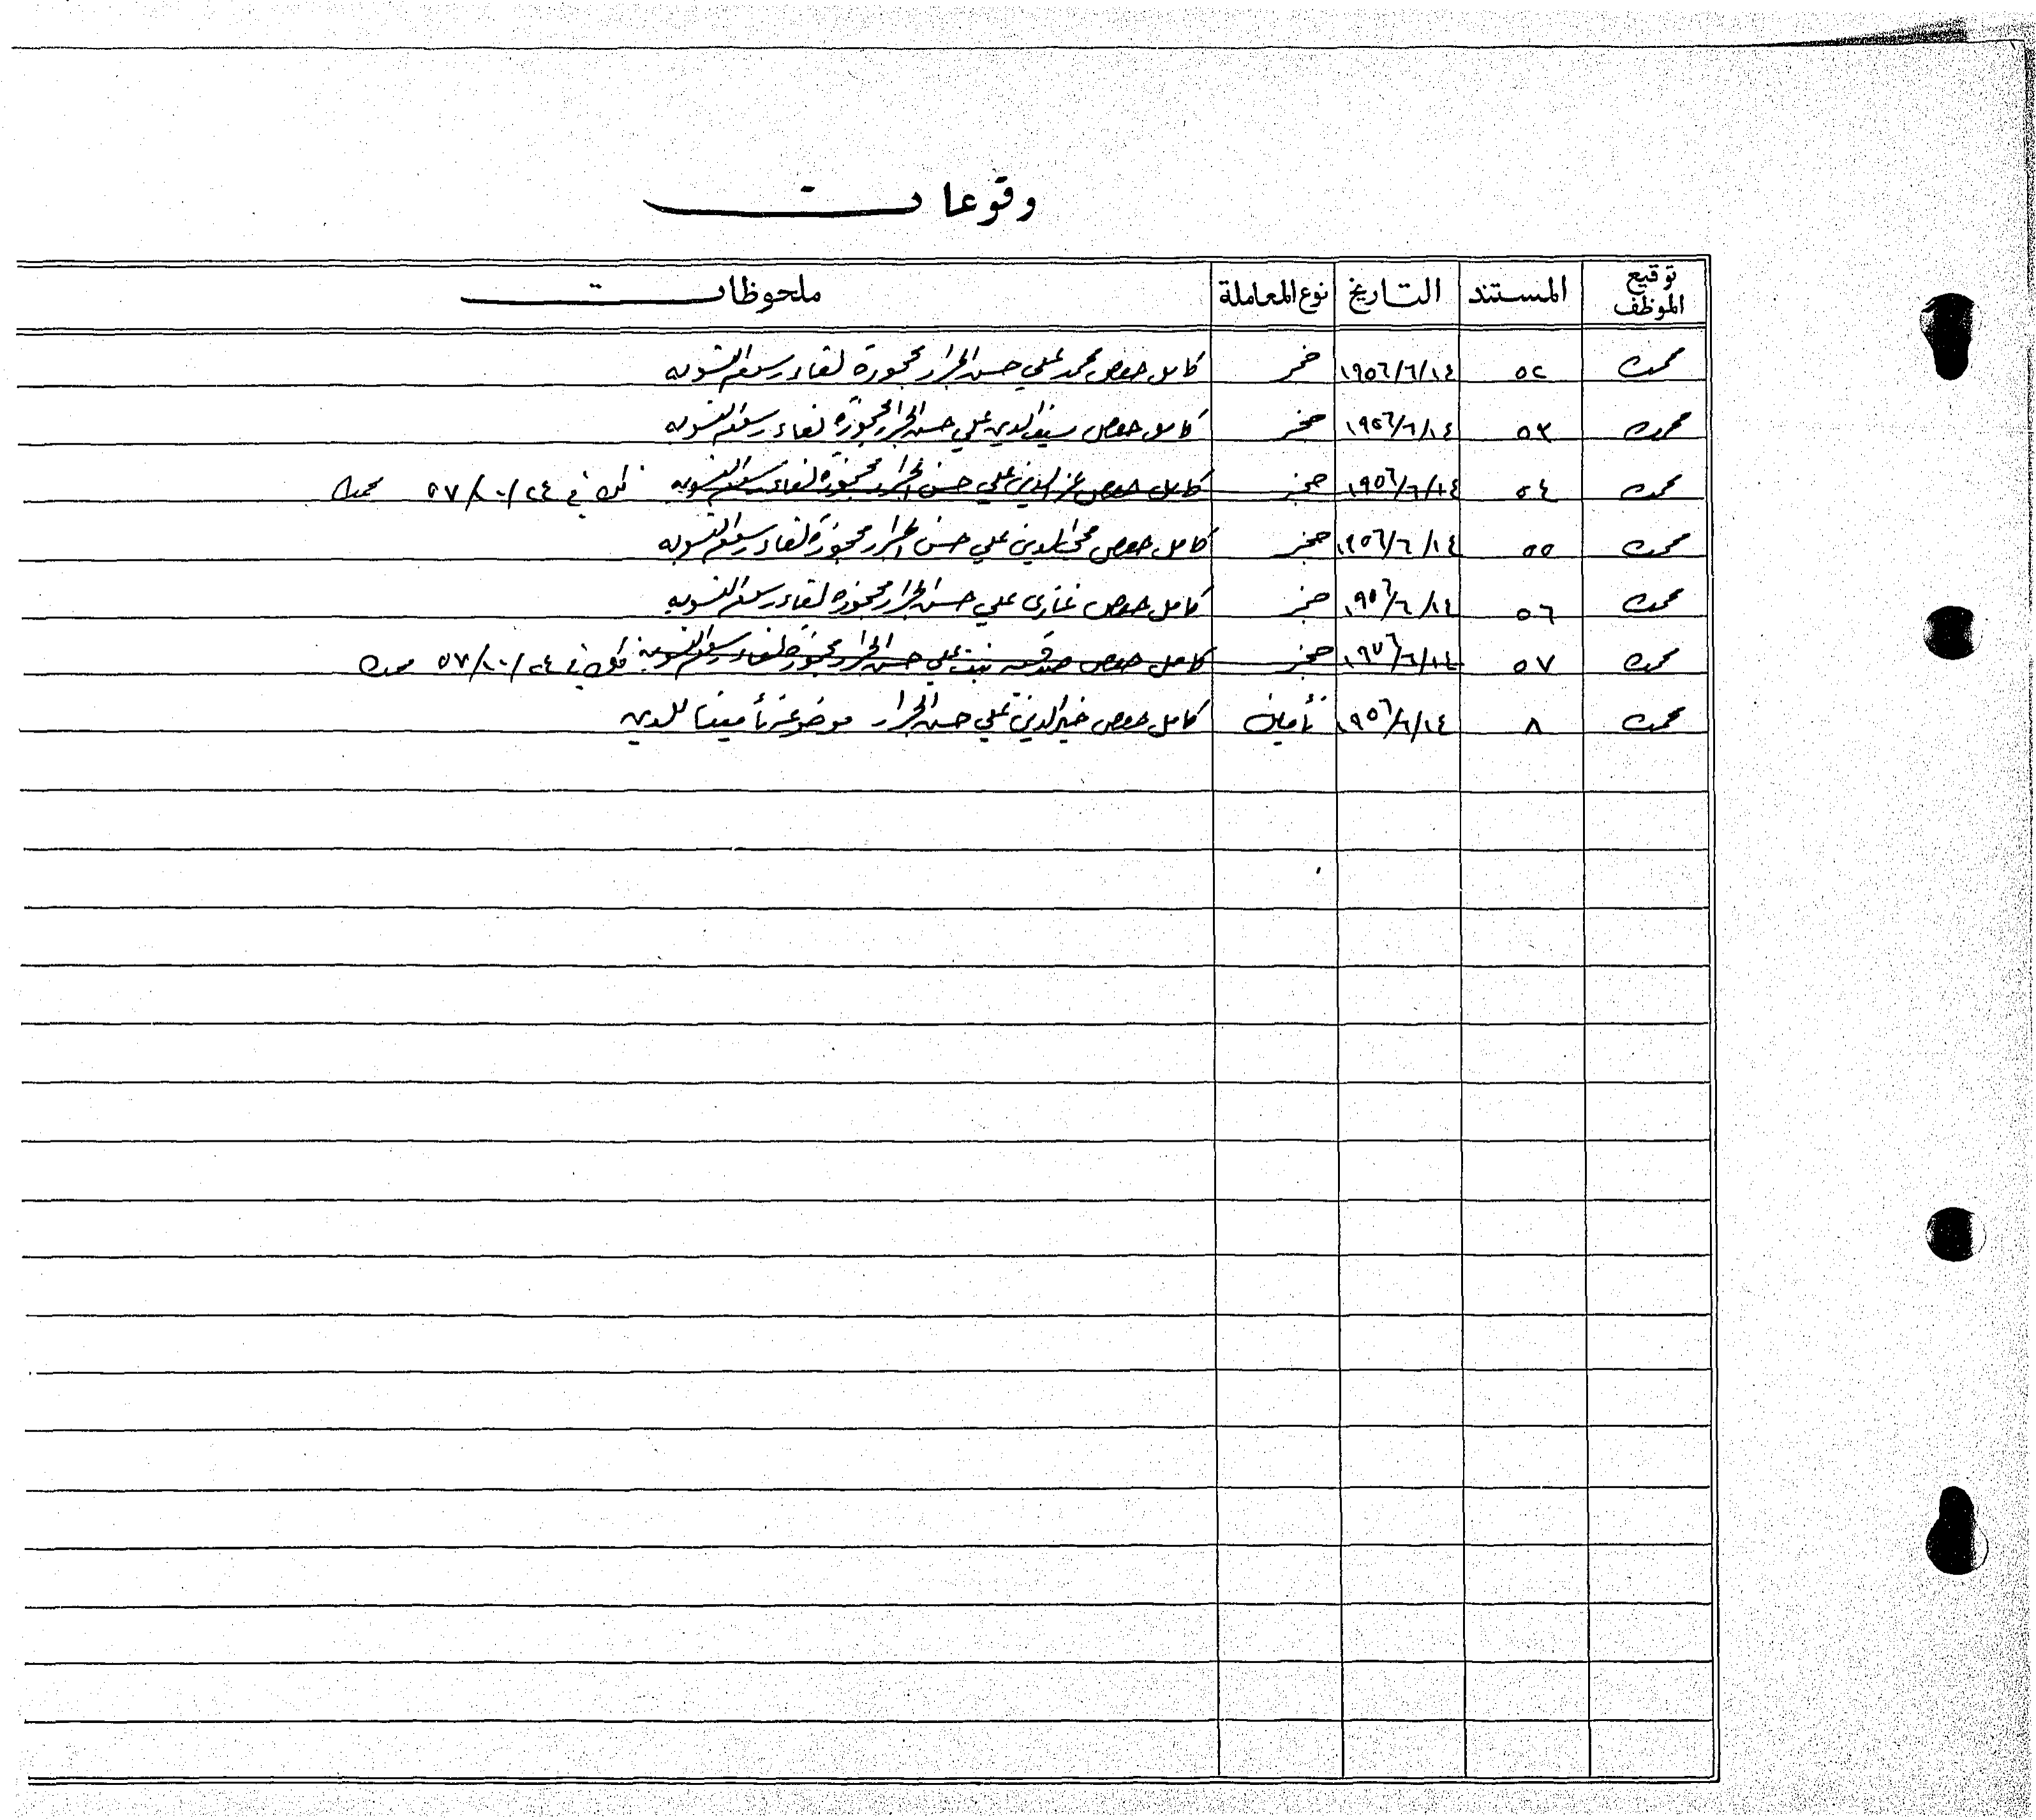 وقوعات
توقيع الموظف المستند التاريخ نوع المعاملة ملحوظات
محمد ٥٢ ١٩٥٦/٦/١٤ حجز كامل حصص محمد علي حسن الجرار محجوزة لقاء رسوم التسويه
محمد ٥٣ ١٩٥٦/٦/١٤ حجز كامل حصص سيف الدين علي حسن الجرار محجوزة لقاء رسوم التسويه
محمد ٥٤ ١٩٥٦/٦/١٤ حجز كامل حصص عز الدين علي حسن الجرار محجوزة لقاء رسوم التسويه فك في ٥٧/١٠/٢٤ محمد
محمد ٥٥ ١٩٥٦/٦/١٤ حجز كامل حصص محي الدين علي حسن الجرار محجوزة لقاء رسوم التسويه
محمد ٥٦ ١٩٥٦/٦/١٤ حجز كامل حصص غازي علي حسن الجرار محجوزة لقاء رسوم التسويه
محمد ٥٧ ١٩٥٦/٦/١٤ حجز كامل حصص بنت علي حسن الجرار محجوزة لقاء رسوم التسويه فك في ٥٧/١٠/٢٤ محمد
محمد ٨ ١٩٥٦/٦/١٤ تأمين كامل حصص خير الدين علي حسن الجرار موضوعة تأمينا للدين